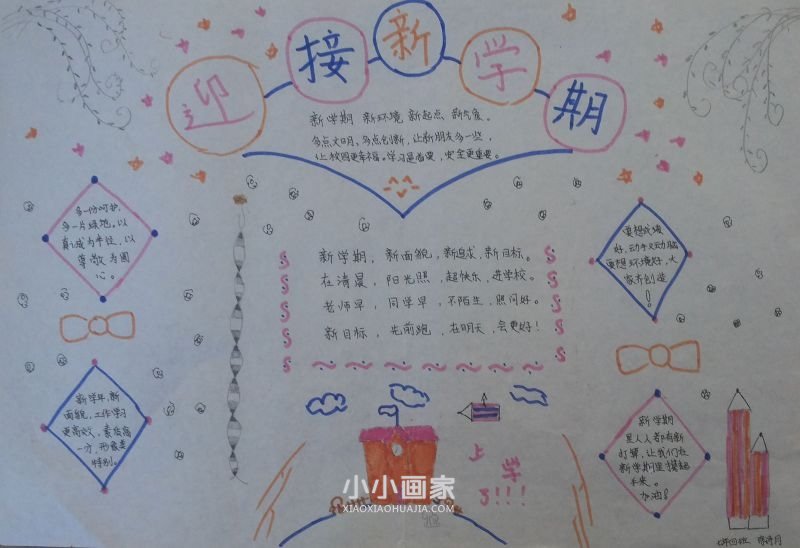 迎接新学期
新学期 新环境 新起点 新气象。
多点文明,多点创新,让新朋友多一些,
让校园更幸福。学习是首要,安全更重要。
多一份呵护,
多一片绿地。以
真诚为半径,以
尊敬为圆
心。
新学期,新面貌,新追求,新目标。
在清晨,阳光照,超快乐,进学校。
老师早,同学早,不陌生,照问好。
新目标,先前跑,在明天,会更好!
要想成绩
好,动手又动脑
要想环境好,大
家齐创造
!
新学年,新
面貌,工作学习
更高效,素质高
一分,形象更
特别。
上
学
了!!!
新学期
里人人都有新
打算,让我们在
新学期里撑起
未来。
加油!
小小画家
XIAOXIAOHUAJIA.COM